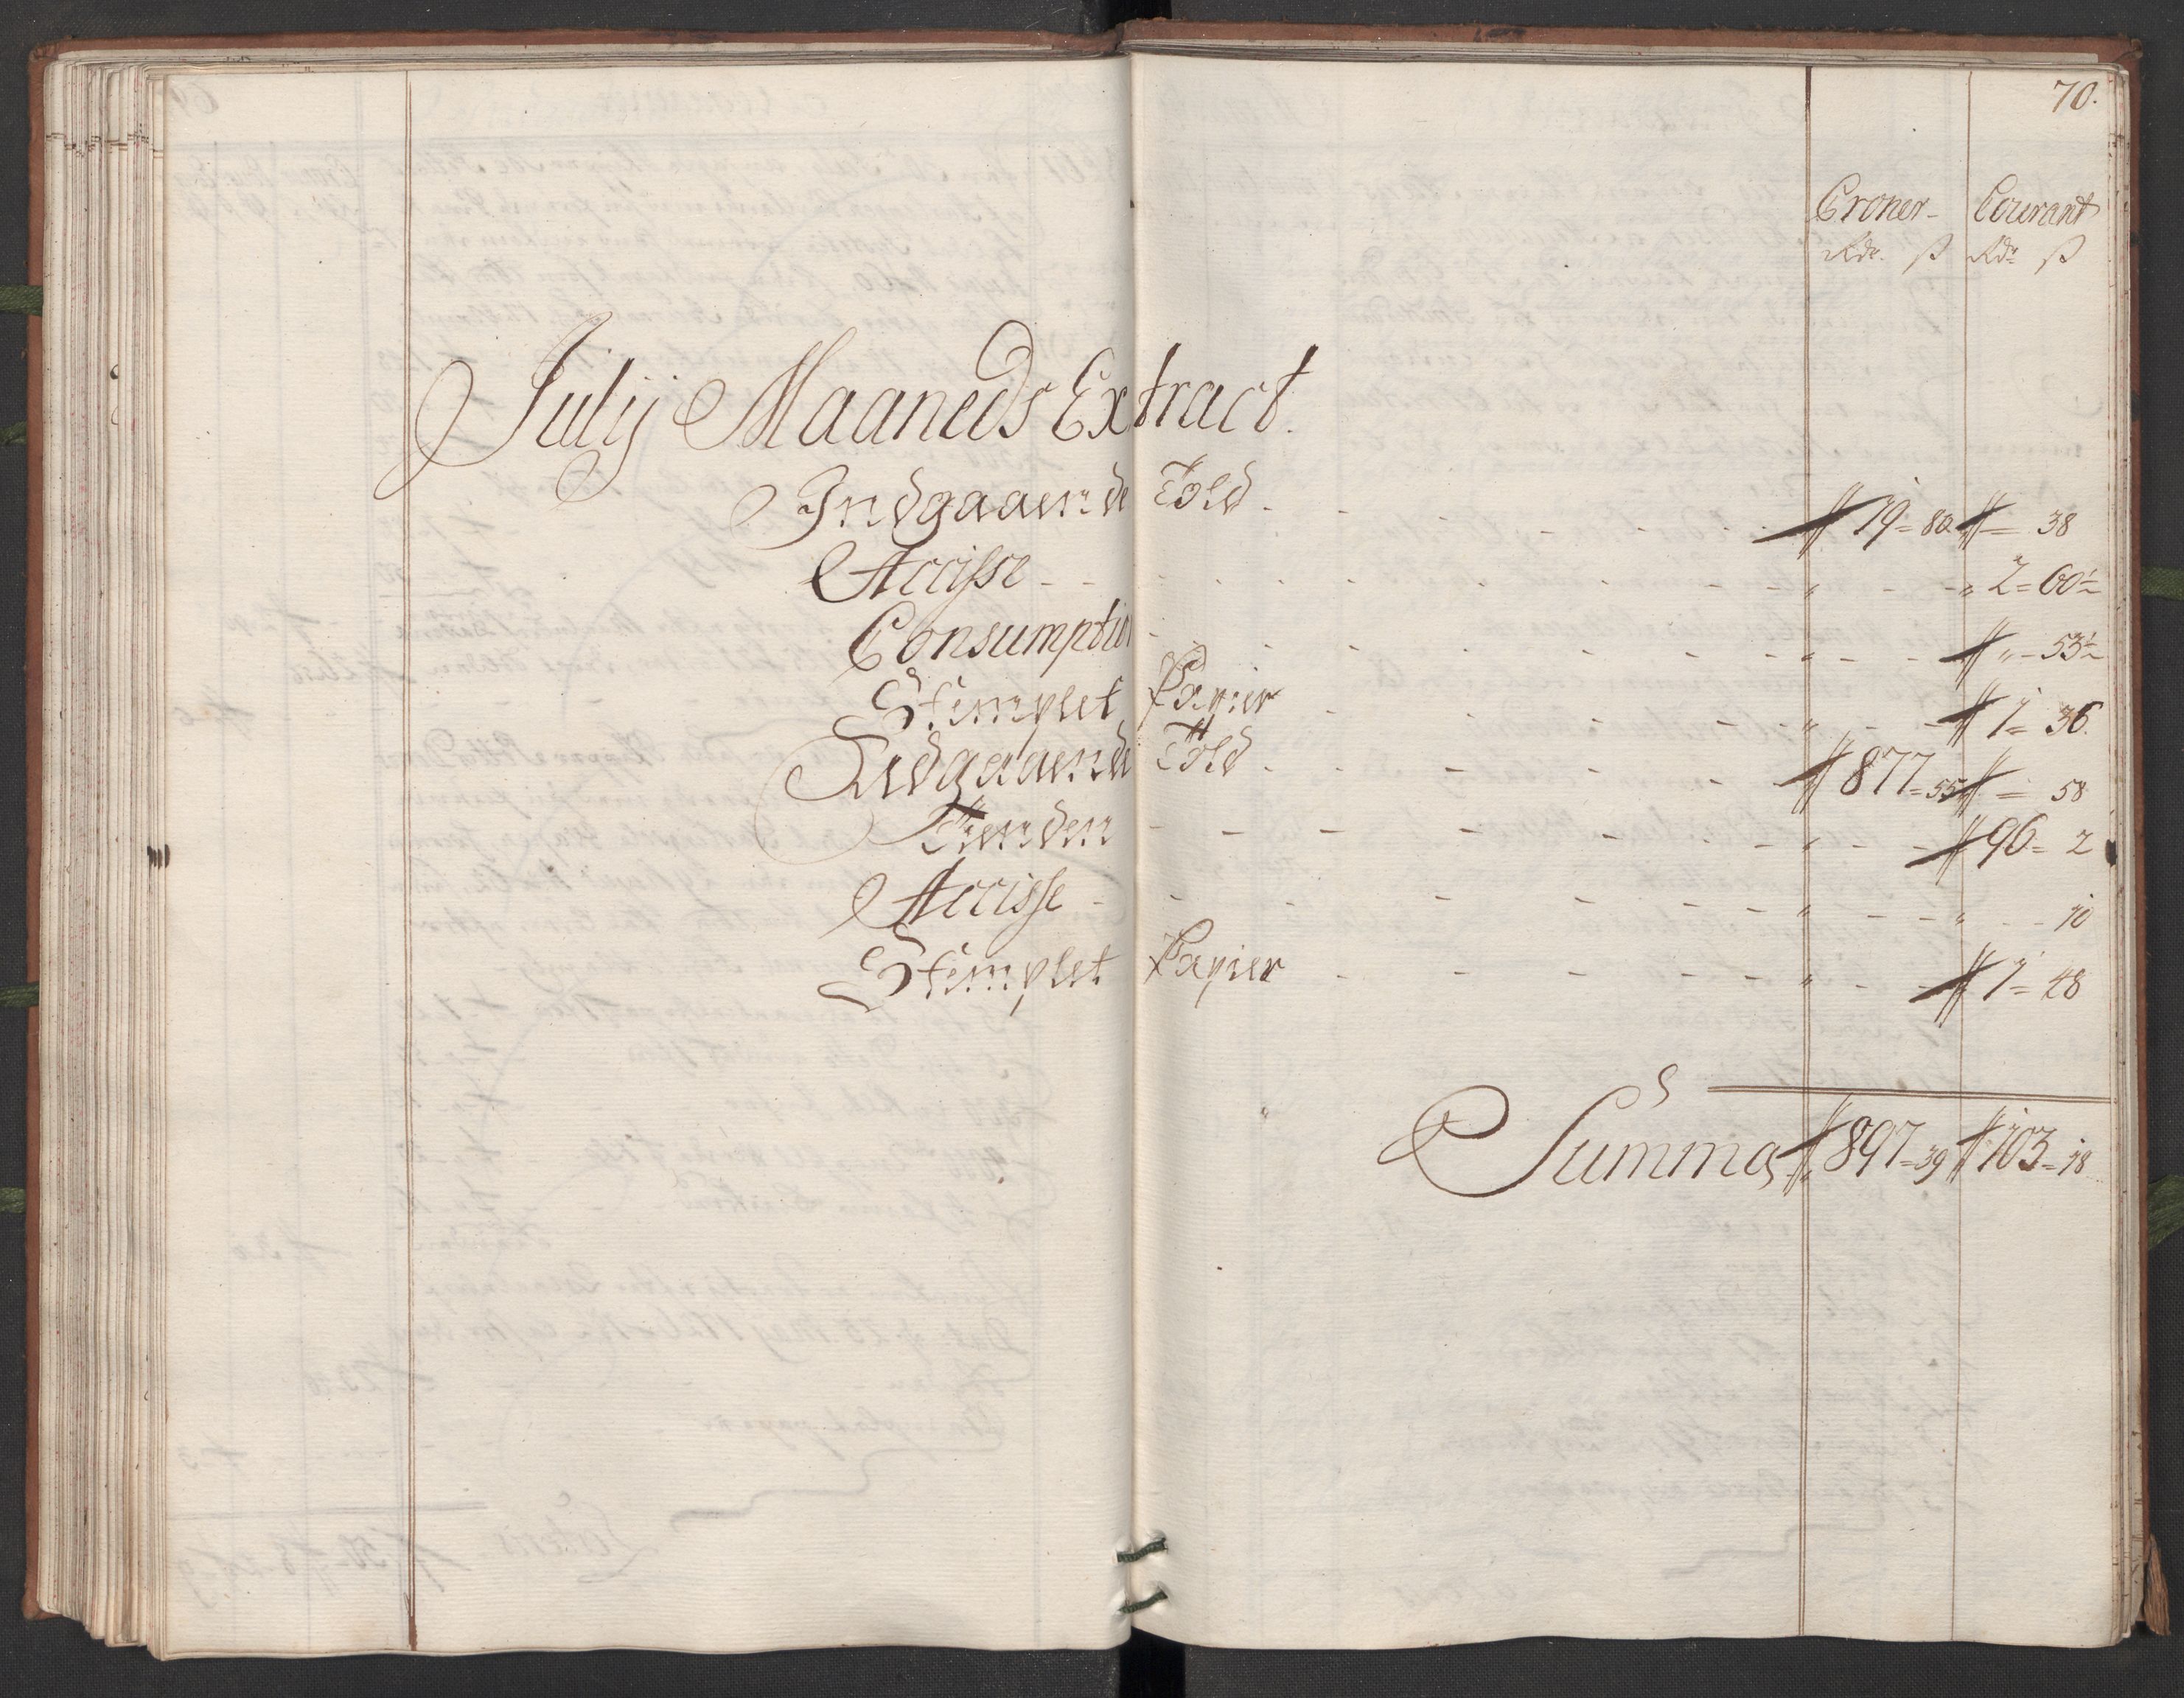 70.
Croner - Courant
Rdr. ß Rdr ß
Julij Maaneds Extract.
Indgaaende Told . - - - - # 19 = 80 # = 38
Accisse - - - - - " - - " 2 = 60½
Consumption - - - - - " - - # " - 53½
Stemplet Papier - - - - " - - # 1 = 36.
Udgaaende Told . - - - # 877 = 55 # = 58
Tienden - - - - - " - - # 96 = 2
Accisse - - - - - " - - " - - 10
Stemplet Papier - - - - " - - # 1 = 48
Summa # 897 = 39 # 103 = 18